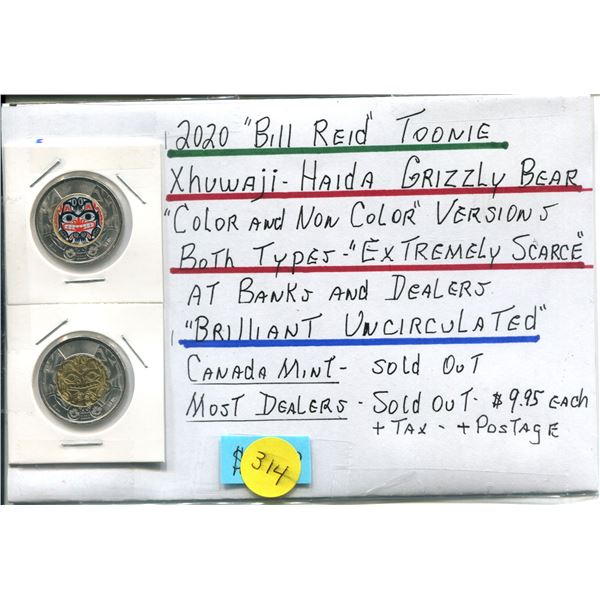 2020 "Bill Reid" Toonie
Xhuwaji - Haida Grizzly Bear
"Color and Non Color" Versions
Both Types - "Extremely Scarce"
At Banks and Dealers
"Brilliant Uncirculated"
Canada Mint - Sold Out
Most Dealers - Sold Out - $9.95 each
+ Tax - + Postage
$
314